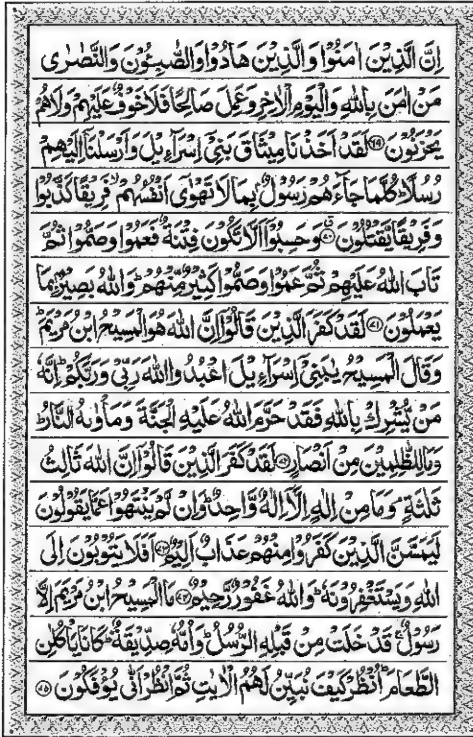 اِنَّ الَّذِيْنَ اٰمَنُوْا وَالَّذِيْنَ هَادُوْا وَالصّٰبِـُٔوْنَ وَالنَّصٰرٰى
مَنْ اٰمَنَ بِاللّٰهِ وَالْيَوْمِ الْاٰخِرِ وَعَمِلَ صَالِحًا فَلَا خَوْفٌ عَلَيْهِمْ وَلَا هُمْ
يَحْزَنُوْنَ ﴿٦٩﴾ لَقَدْ اَخَذْنَا مِيْثَاقَ بَنِيْٓ اِسْرَآءِيْلَ وَاَرْسَلْنَآ اِلَيْهِمْ
رُسُلًا ؕ كُلَّمَا جَآءَهُمْ رَسُوْلٌۢ بِمَا لَا تَهْوٰٓى اَنْفُسُهُمْ ۙ فَرِيْقًا كَذَّبُوْا
وَفَرِيْقًا يَّقْتُلُوْنَ ﴿٧٠﴾ وَحَسِبُوْٓا اَلَّا تَكُوْنَ فِتْنَةٌ فَعَمُوْا وَصَمُّوْا ثُمَّ
تَابَ اللّٰهُ عَلَيْهِمْ ثُمَّ عَمُوْا وَصَمُّوْا كَثِيْرٌ مِّنْهُمْ ؕ وَاللّٰهُ بَصِيْرٌۢ بِمَا
يَعْمَلُوْنَ ﴿٧١﴾ لَقَدْ كَفَرَ الَّذِيْنَ قَالُوْٓا اِنَّ اللّٰهَ هُوَ الْمَسِيْحُ ابْنُ مَرْيَمَ ؕ
وَقَالَ الْمَسِيْحُ يٰبَنِيْٓ اِسْرَآءِيْلَ اعْبُدُوا اللّٰهَ رَبِّيْ وَرَبَّكُمْ ؕ اِنَّهٗ
مَنْ يُّشْرِكْ بِاللّٰهِ فَقَدْ حَرَّمَ اللّٰهُ عَلَيْهِ الْجَنَّةَ وَمَاْوٰىهُ النَّارُ ؕ
وَمَا لِلظّٰلِمِيْنَ مِنْ اَنْصَارٍ ﴿٧٢﴾ لَقَدْ كَفَرَ الَّذِيْنَ قَالُوْٓا اِنَّ اللّٰهَ ثَالِثُ
ثَلٰثَةٍ ۘ وَمَا مِنْ اِلٰهٍ اِلَّآ اِلٰهٌ وَّاحِدٌ ؕ وَاِنْ لَّمْ يَنْتَهُوْا عَمَّا يَقُوْلُوْنَ
لَيَمَسَّنَّ الَّذِيْنَ كَفَرُوْا مِنْهُمْ عَذَابٌ اَلِيْمٌ ﴿٧٣﴾ اَفَلَا يَتُوْبُوْنَ اِلَى
اللّٰهِ وَيَسْتَغْفِرُوْنَهٗ ؕ وَاللّٰهُ غَفُوْرٌ رَّحِيْمٌ ﴿٧٤﴾ مَا الْمَسِيْحُ ابْنُ مَرْيَمَ اِلَّا
رَسُوْلٌ ۚ قَدْ خَلَتْ مِنْ قَبْلِهِ الرُّسُلُ ؕ وَاُمُّهٗ صِدِّيْقَةٌ ؕ كَانَا يَاْكُلٰنِ
الطَّعَامَ ؕ اُنْظُرْ كَيْفَ نُبَيِّنُ لَهُمُ الْاٰيٰتِ ثُمَّ انْظُرْ اَنّٰى يُؤْفَكُوْنَ ﴿٧٥﴾